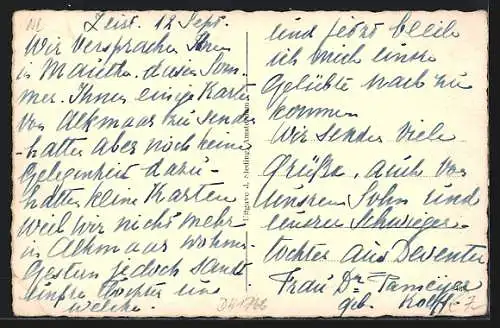 Zeist. 12 Sept.
Wir versprachen Ihnen
in Mauthen diesen Som-
mer. Ihnen einige Karten
von Alkmaar zu senden
hatten aber noch keine
Gelegenheit dazu-
hatten keine Karten
weil wir nicht mehr
in Alkmaar wohnen-
Gestern jedoch sandte
unsre Tochter uns
welche.
und jetzt beeile
ich mich unsre
Gelübte nach zu
kommen
Wir senden viele
Grüße, auch von
unsrem Sohn und
unsren Schwieger-
tochter aus Deventer
Frau Dr. Pameijer
geb. Kolff
Uitgave J. Sleding, Amsterdam